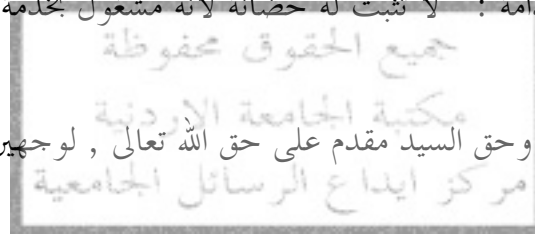 لا تثبت له حضانة لأنه مشغول بخدمة
جميع الحقوق محفوظة
مكتبة الجامعة الاردنية
وحق السيد مقدم على حق الله تعالى , لوجهين
مركز ايداع الرسائل الجامعية